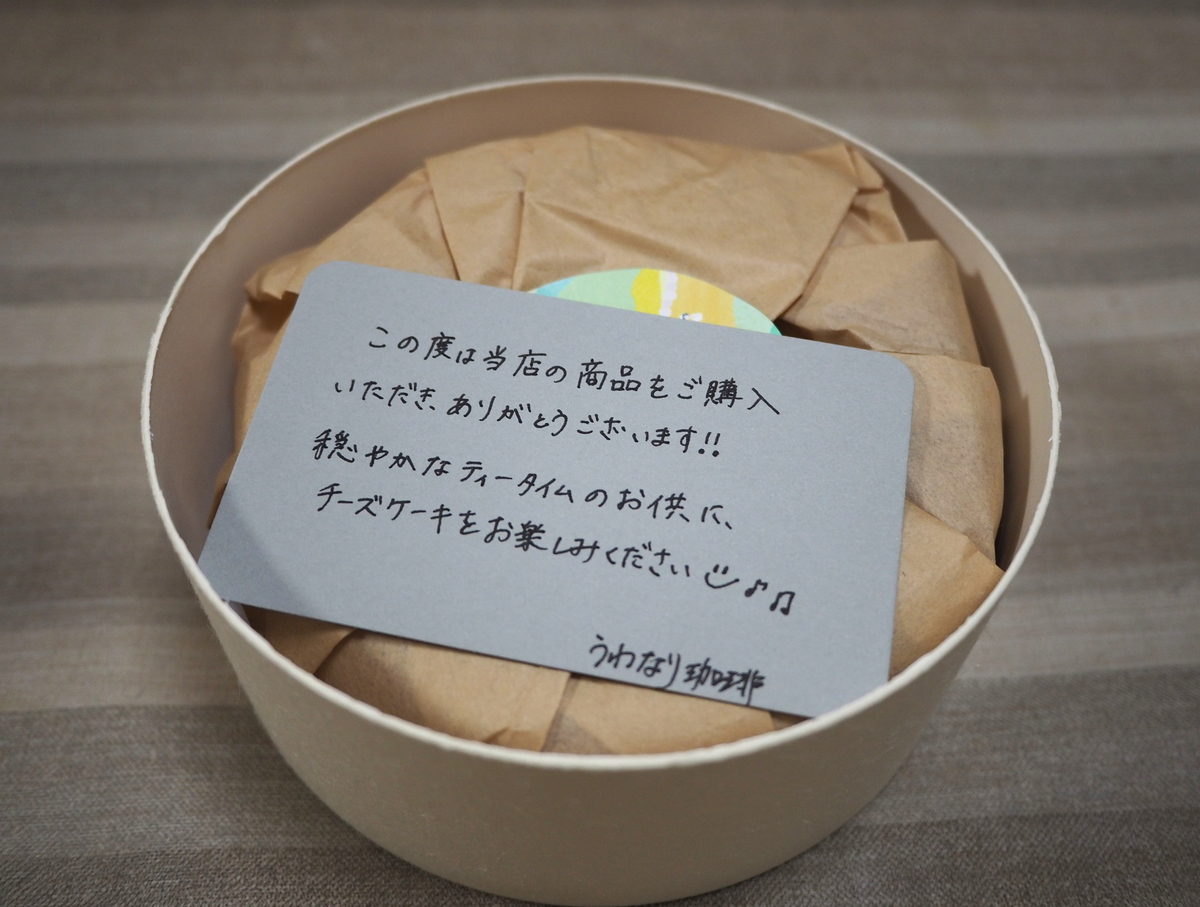 この度は当店の商品をご購入
いただき、ありがとうございます!!
穏やかなティータイムのお供に、
チーズケーキをお楽しみください ♪♫
うわなり珈琲